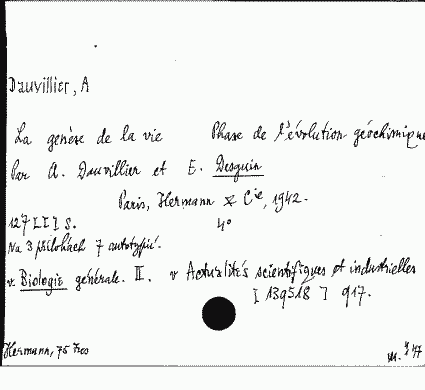 Dauvillier, A
La genèse de la vie Phase de l'évolution géochimique
Par A. Dauvillier et E. Desguin
Paris, Hermann & Cie, 1942.
127 [I] s. 4°
Na 3 přílohách 7 autotypií.
v Biologie générale. II. v Actualités scientifiques et industrielles
[139518] 917.
Hermann, 75 Frcs